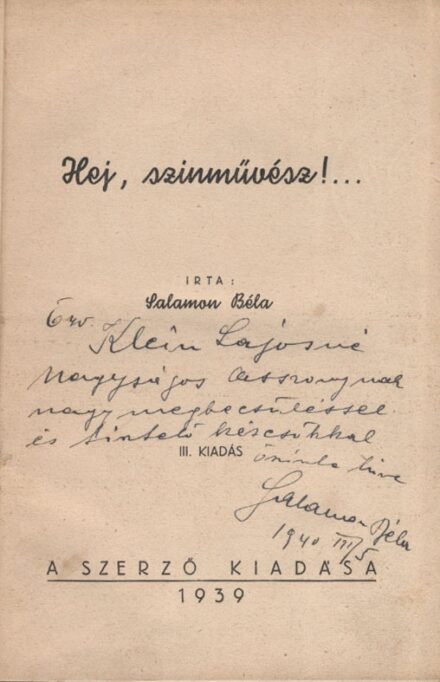 Hej, szinművész!...
IRTA:
Salamon Béla
Özv.
Klein Lajosné
Nagyságos Asszonynak
nagy megbecsüléssel
és tisztelő kézcsókkal
III. KIADÁS
őszinte híve
Salamon Béla
1940 III/5
A SZERZŐ KIADÁSA
1939